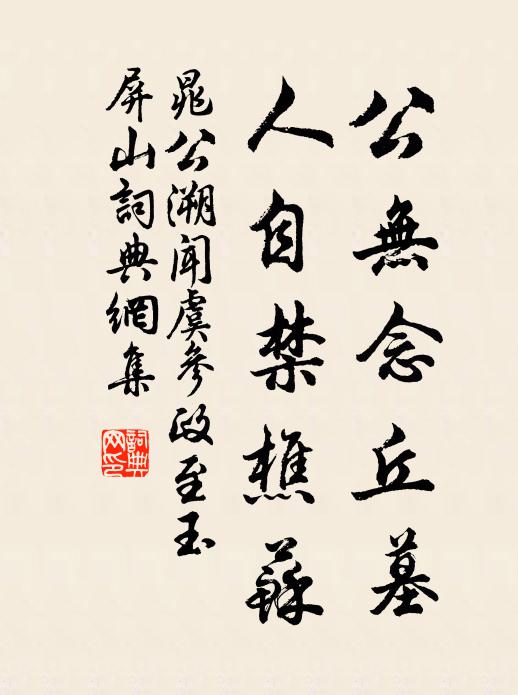 公無念丘墓
人自禁樵蘇
晁公溯聞虞參政至玉
屏山詞典網集
詞典
网印